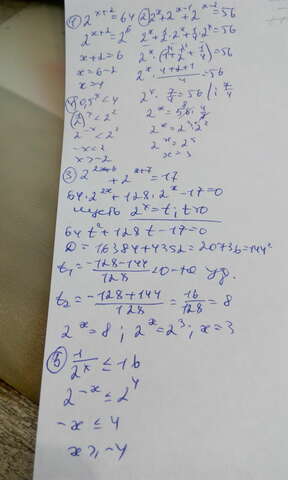 ① 2^{x+2} = 64
2^{x+2} = 2^6
x+2 = 6
x = 6-2
x = 4
② 2^x + 2^{x-1} + 2^{x-2} = 56
2^x + 1/2 · 2^x + 1/4 · 2^x = 56
2^x · (1 + 1/2 + 1/4) = 56
2^x · (4+2+1)/4 = 56
2^x · 7/4 = 56 | : 7/4
2^x = 56 · 4/7
2^x = 2^3 · 2^2
2^x = 2^5
x = 3
④ 0,5^x < 4
(1/2)^x < 2^2
2^{-x} < 2^2
-x < 2
x > -2
③ 2^{2x+6} + 2^{x+7} = 17
64 · 2^{2x} + 128 · 2^x - 17 = 0
пусть 2^x = t; t>0
64 t^2 + 128 t - 17 = 0
D = 16384 + 4352 = 20736 = 144^2
t_1 = (-128-144)/128 < 0 - не уд.
t_2 = (-128+144)/128 = 16/128 = 8
2^x = 8; 2^x = 2^3; x = 3
⑤ 1/2^x ≤ 16
2^{-x} ≤ 2^4
-x ≤ 4
x ≥ -4